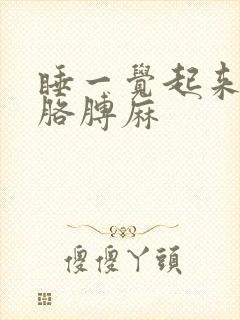 睡一覺起來
胳膊麻
傻傻丫頭